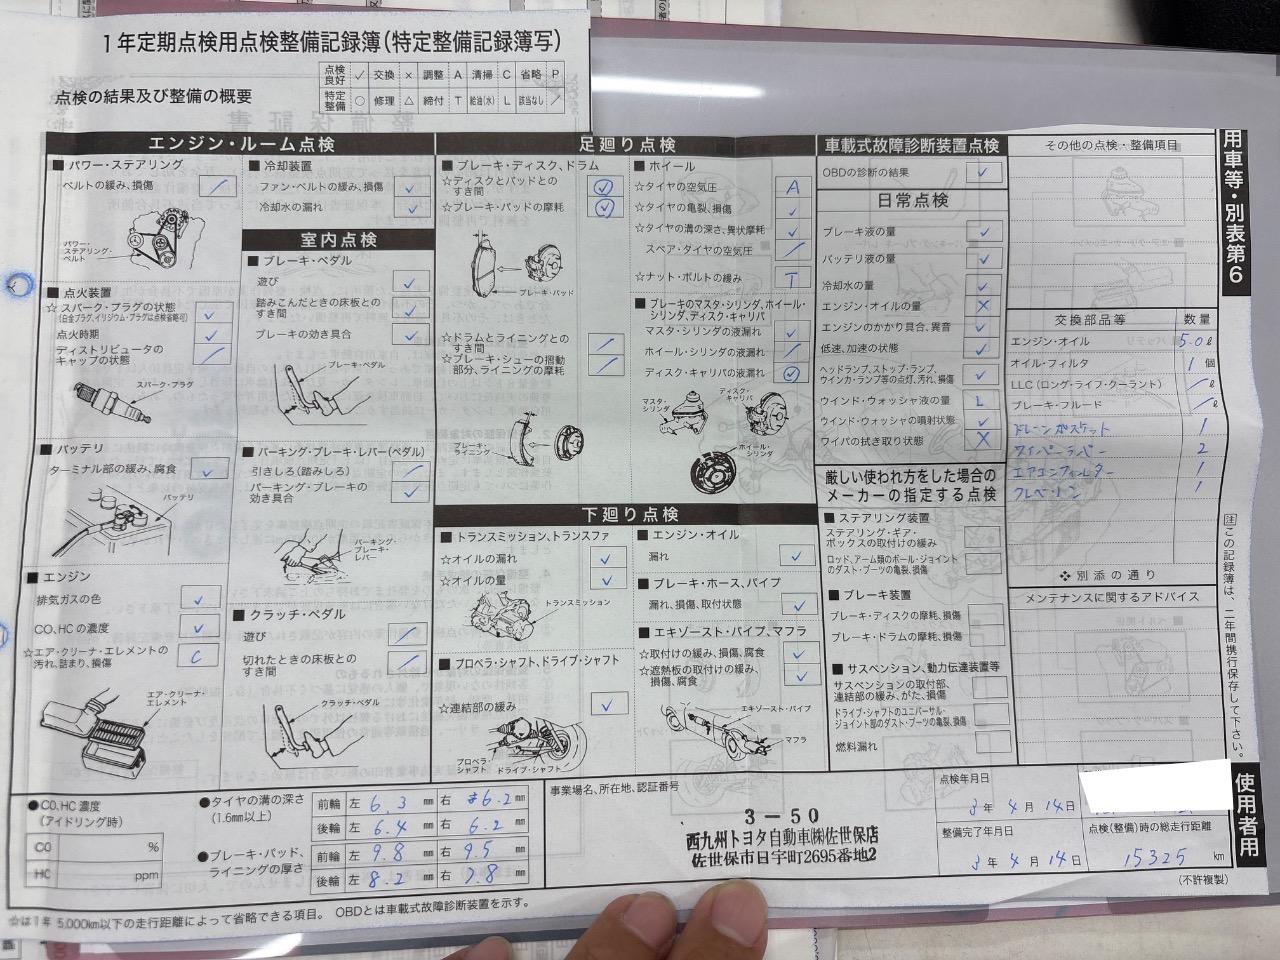 1年定期点検用点検整備記録簿(特定整備記録簿写)
点検の結果及び整備の概要
点検良好 ✓ 交換 × 調整 A 清掃 C 省略 P
特定整備 ○ 修理 △ 締付 T 給油(水) L 該当なし ／
エンジン・ルーム点検
■ パワー・ステアリング
ベルトの緩み、損傷 ／
パワー・ステアリング・ベルト
■ 点火装置
☆ スパーク・プラグの状態 ✓
(白金プラグ、イリジウム・プラグは点検省略可)
点火時期 ✓
ディストリビュータの
キャップの状態 ／
スパーク・プラグ
■ バッテリ
ターミナル部の緩み、腐食 ✓
バッテリ
■ エンジン
排気ガスの色 ✓
CO、HCの濃度 ✓
☆エア・クリーナ・エレメントの
汚れ、詰まり、損傷 C
エア・クリーナ・エレメント
■ 冷却装置
ファン・ベルトの緩み、損傷 ✓
冷却水の漏れ ✓
室内点検
■ ブレーキ・ペダル
遊び ✓
踏みこんだときの床板との
すき間 ✓
ブレーキの効き具合 ✓
ブレーキ・ペダル
■ パーキング・ブレーキ・レバー(ペダル)
引きしろ(踏みしろ) ／
パーキング・ブレーキの
効き具合 ✓
パーキング・ブレーキ・レバー
■ クラッチ・ペダル
遊び ／
切れたときの床板との
すき間 ／
クラッチ・ペダル
足廻り点検
■ ブレーキ・ディスク、ドラム
☆ディスクとパッドとの
すき間 ✓
☆ブレーキ・パッドの摩耗 ✓
ブレーキ・パッド
☆ドラムとライニングとの
すき間 ／
☆ブレーキ・シューの摺動
部分、ライニングの摩耗 ／
ブレーキ・ライニング
■ ホイール
☆タイヤの空気圧 A
☆タイヤの亀裂、損傷 ✓
☆タイヤの溝の深さ、異状摩耗 ✓
スペア・タイヤの空気圧 ／
☆ナット・ボルトの緩み T
■ ブレーキのマスタ・シリンダ、ホイール・
シリンダ、ディスク・キャリパ
マスタ・シリンダの液漏れ ✓
ホイール・シリンダの液漏れ ／
ディスク・キャリパの液漏れ ✓
マスタ・シリンダ
ディスク・キャリパ
ホイール・シリンダ
下廻り点検
■ トランスミッション、トランスファ
☆オイルの漏れ ✓
☆オイルの量 ✓
トランスミッション
■ プロペラ・シャフト、ドライブ・シャフト
☆連結部の緩み ✓
プロペラ・シャフト
ドライブ・シャフト
■ エンジン・オイル
漏れ ✓
■ ブレーキ・ホース、パイプ
漏れ、損傷、取付状態 ✓
■ エキゾースト・パイプ、マフラ
☆取付けの緩み、損傷、腐食 ✓
☆遮熱板の取付けの緩み、
損傷、腐食 ✓
エキゾースト・パイプ
マフラ
車載式故障診断装置点検
OBDの診断の結果 ✓
日常点検
ブレーキ液の量 ✓
バッテリ液の量 ✓
冷却水の量 ✓
エンジン・オイルの量 ×
エンジンのかかり具合、異音 ✓
低速、加速の状態 ✓
ヘッドランプ、ストップ・ランプ、
ウインカ・ランプ等の点灯、汚れ、損傷 ✓
ウインド・ウォッシャ液の量 L
ウインド・ウォッシャの噴射状態 ✓
ワイパの拭き取り状態 ×
厳しい使われ方をした場合の
メーカーの指定する点検
■ ステアリング装置
ステアリング・ギア・
ボックスの取付けの緩み
ロッド、アーム類のボール・ジョイント
のダスト・ブーツの亀裂、損傷
■ ブレーキ装置
ブレーキ・ディスクの摩耗、損傷
ブレーキ・ドラムの摩耗、損傷
■ サスペンション、動力伝達装置等
サスペンションの取付部、
連結部の緩み、がた、損傷
ドライブ・シャフトのユニバーサル・
ジョイント部のダスト・ブーツの亀裂、損傷
燃料漏れ
その他の点検・整備項目
交換部品等 数量
エンジン・オイル 5.0ℓ
オイル・フィルタ 1個
LLC(ロング・ライフ・クーラント) ／ℓ
ブレーキ・フルード ／ℓ
ドレーンガスケット 1
ワイパーラバー 2
エアコンフィルター 1
1
❖ 別添の通り
メンテナンスに関するアドバイス
用車等・別表第6
注この記録簿は、二年間携行保存して下さい。
使用者用
●CO、HC濃度
(アイドリング時)
CO %
HC ppm
●タイヤの溝の深さ
(1.6mm以上)
前輪 左 6.3 mm 右 6.2 mm
後輪 左 6.4 mm 右 6.2 mm
●ブレーキ・パッド、
ライニングの厚さ
前輪 左 9.8 mm 右 9.5 mm
後輪 左 8.2 mm 右 7.8 mm
事業場名、所在地、認証番号
3－50
西九州トヨタ自動車㈱佐世保店
佐世保市日宇町2695番地2
点検年月日
3年4月14日
整備完了年月日
3年4月14日
点検(整備)時の総走行距離
15325 km
(不許複製)
☆は1年 5,000km以下の走行距離によって省略できる項目。 OBDとは車載式故障診断装置を示す。